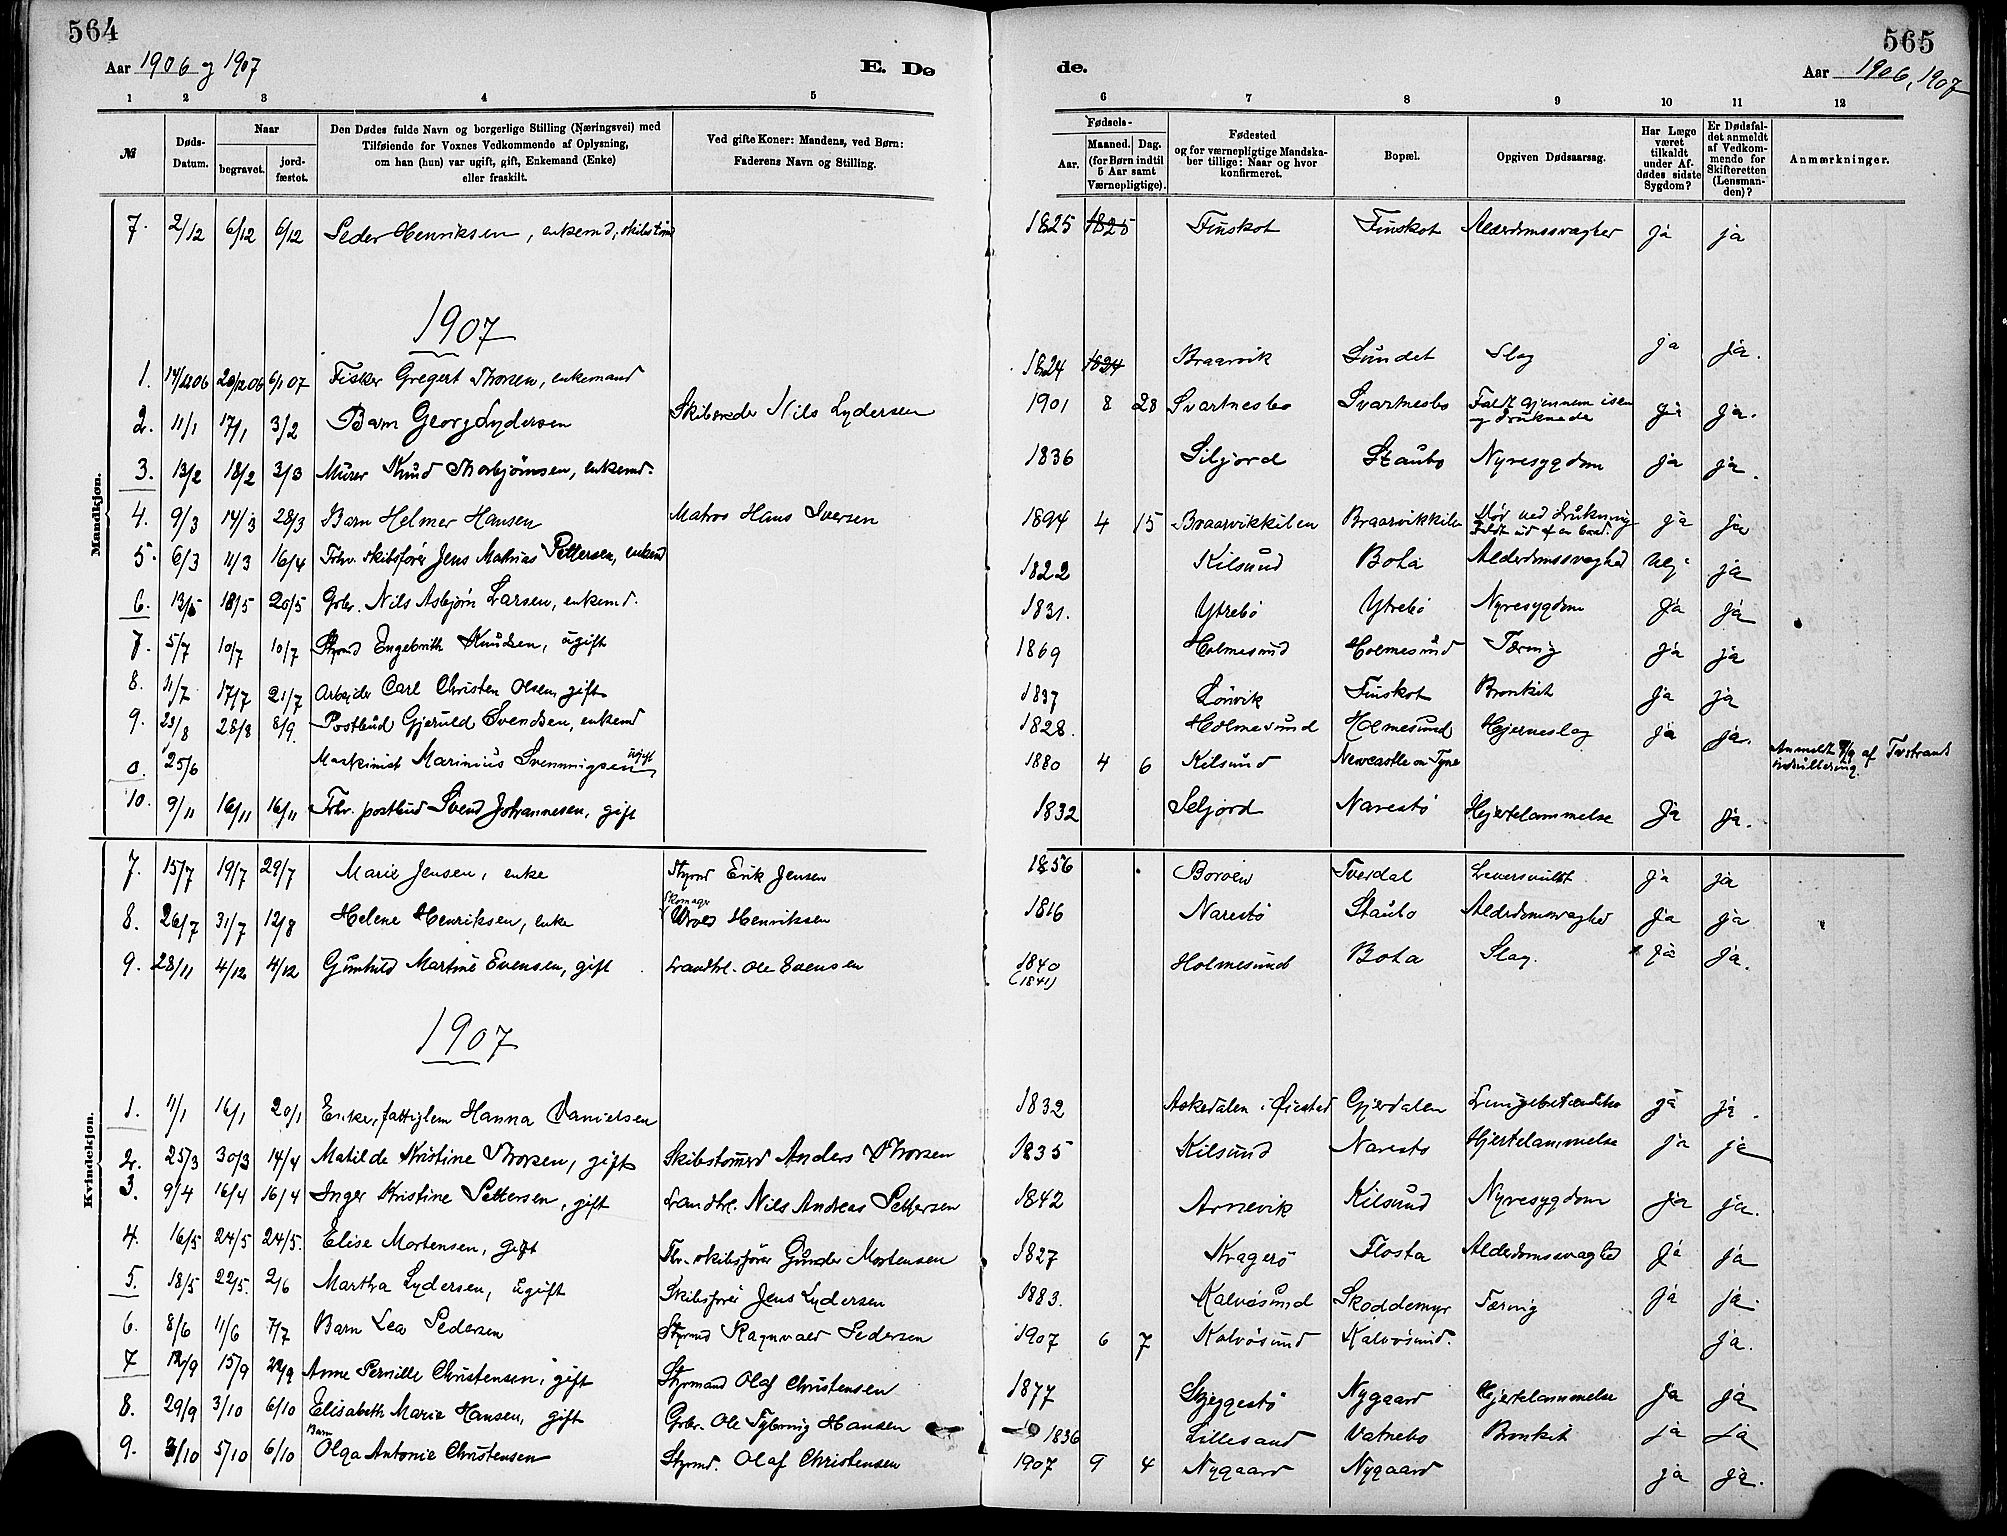 564
565
Aar 1906 og 1907
E. Dø
de.
Aar 1906, 1907
1 2 3 4 5
6 7 8 9 10 11 12
№
Døds-
Datum.
Naar
begravet.
jord-
fæstet.
Den Dødes fulde Navn og borgerlige Stilling (Næringsvei) med
Tilføiende for Voxnes Vedkommende af Oplysning,
om han (hun) var ugift, gift, Enkemand (Enke)
eller fraskilt.
Ved gifte Koner: Mandens, ved Børn:
Faderens Navn og Stilling.
Fødsels-
Aar.
Maaned. Dag.
(for Børn indtil
5 Aar samt
Værnepligtige).
Fødested
og for værnepligtige Mandska-
ber tillige: Naar og hvor
konfirmeret.
Bopæl.
Opgiven Dødsaarsag.
Har Læge
været
tilkaldt
under Af-
dødes sidste
Sygdom?
Er Dødsfal-
det anmeldt
af Vedkom-
mende for
Skifteretten
(Lensman-
den)?
Anmærkninger.
Mandkjøn.
7. 2/12 6/12 6/12 Peder Henriksen, enkemd, skibstømd 1825 1825 Finskot Finskot Alderdomssvaghed ja ja
1907
1. 14/12 06 20/12 06 6/1 07 Fisker Gregert Thorsen, enkemand 1824 1824 Braarvik Sundet Slag ja ja.
2. 11/1 17/1 3/2 Barn Georg Lydersen Skibsreder Nils Lydersen 1901 8 28 Svartnesbo Svartnesbo Faldt gjennem isen
og druknede ja ja.
3. 13/2 18/2 3/3 Murer Knud Thorbjörnsen, enkemd. 1836 Siljord Staubo Nyresygdom ja ja.
4. 9/3 14/3 28/3 Barn Helmer Hansen Matros Hans Iversen 1894 4 15 Braarvikkilen Braarvikkilen Död ved drukning
Faldt ud af en baad. ja ja
5. 6/3 11/3 16/4 Fhv. skibsförer Jens Mathias Pettersen, enkemd 1822 Kilsund Bota Alderdomssvaghed nej ja
6. 13/5 18/5 20/5 Gbr. Nils Asbjørn Larsen, enkemd. 1831. Ytrebö Ytrebö Nyresygdom ja ja
7. 5/7 10/7 10/7 Styrmd Engebrith Knudsen, ugift 1869 Holmesund Holmesund Tæring ja ja
8. 11/7 17/7 21/7 Arbejder Carl Christen Olsen, gift 1837 Lönvik Finskot Bronkit ja ja
9. 23/8 28/8 8/9. Postbud Gjeruld Svendsen, enkemd 1828. Holmesund Holmesund Hjerneslag ja ja.
0. 25/6 Maskinist Marinius Svenningsen ugift 1880 4 6 Kilsund Newcastle on Tyne Anmeldt 9/9 af Tvestrands
indrullering.
10. 9/11 16/11 16/11 Fhv. postbud Svend Johannesen, gift 1832 Seljord Narestö Hjertelammelse ja ja.
Kvindekjøn.
7. 15/7 19/7 29/7 Marie Jensen, enke Styrmd Erik Jensen 1856 Borøen Tverdal Leversvulst ja ja
8. 26/7 31/7 12/8 Helene Henriksen, enke Skomager
Henriksen 1816 Narestö Staubo Alderdomssvaghed ja ja
9. 28/11 4/12 4/12 Gunhild Martine Evensen, gift Landhl. Ole Evensen 1840
(1841) Holmesund Bota Slag. ja ja.
1907
1. 11/1 16/1 20/1 Enke, fattiglem Hanna Danielsen 1832 Askedalen i Øiestad Gjerdalen Lungebetændelse ja ja.
2. 25/3 30/3 14/4 Matilde Kristine Thorsen, gift Skibstømmd Anders Thorsen 1835 Kilsund Narestö Hjertelammelse ja ja
3. 9/4 16/4 16/4 Inger Kristine Pettersen, gift Landhl. Nils Andreas Pettersen 1842 Arnevik Kilsund Nyresygdom ja ja.
4. 16/5 24/5 24/5. Elise Mortensen, gift Fhv. skibsförer Gunder Mortensen 1827 Kragerö Flosta Alderdomssvaghed ja ja
5. 18/5 22/5. 2/6 Martha Lydersen, ugift Skibsförer Jens Lydersen 1883. Kalvøsund Skoddemyr Tæring ja ja.
6. 8/6 11/6 7/7 Barn Lea Pedersen Styrmd Ragnvald Pedersen 1907 6 7 Kalvøsund Kalvøsund. ja.
7 12/9 15/9 22/9 Anne Pernille Christensen, gift Styrmand Olaf Christensen 1877 Skjeggestö Nygaard Hjertelammelse ja ja
8. 29/9 3/10 6/10 Elisabeth Marie Hansen, gift Gbr. Ole Tybring Hansen 1836 Lillesand Vatnebo Bronkit ja ja
9. 3/10 5/10 6/10 Barn
Olga Antonie Christensen Styrmd. Olaf Christensen 1907 9 4 Nygaard Nygaard ja ja.